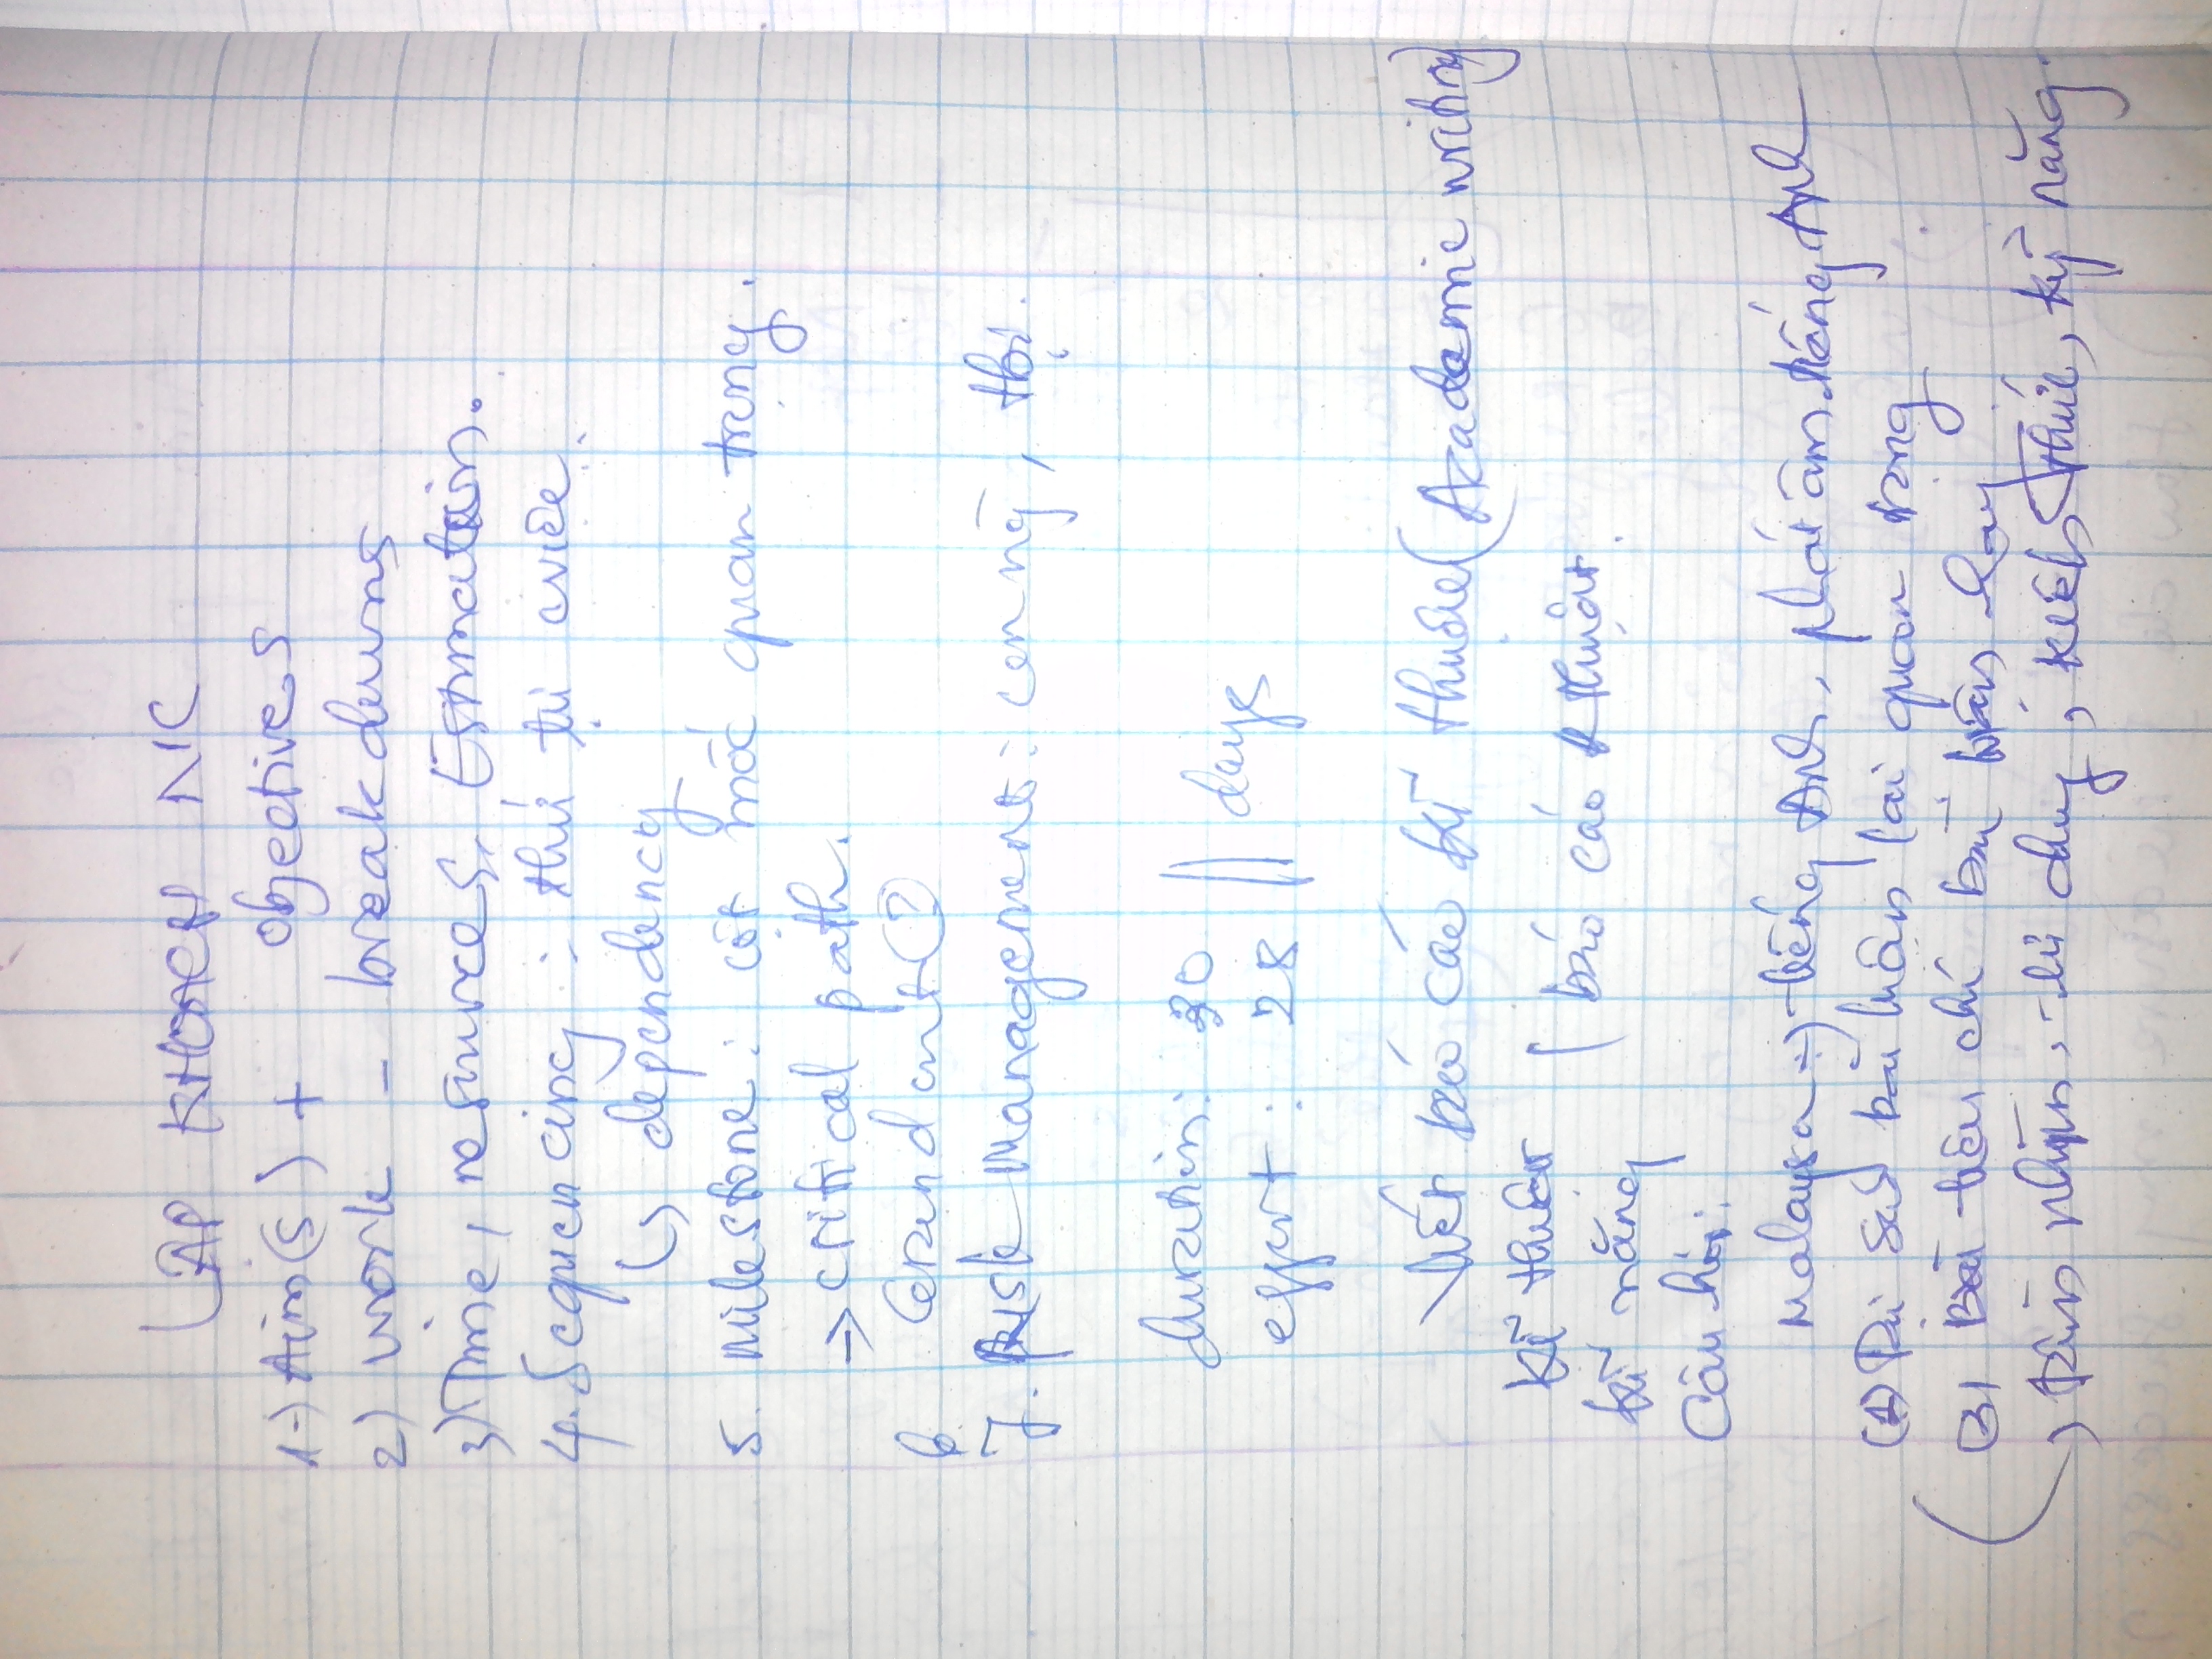 LẬP KHOẠCH N/C
1-) Aim(s) + objectives
2) work - breakdowns
3) Time, resources, Estimation.
4. Sequencing: thứ tự cviệc.
↳ dependency
5. milestone: cột mốc quan trọng.
→ critical path.
6. Grand cmt (?)
7. Risk Management: công, thời.
duration: 30 || days
effort: 28
Viết báo cáo kĩ thuật (Academic writing)
kĩ thuật [báo cáo kthuật.
kĩ năng
Câu hỏi:
Malaysia ÷) tiếng Anh, phát âm tiếng Anh
(A) Tại sao bài luận lại quan trọng
(B) Bài tiêu chí bài luận hay
→ phản nhận, tư duy, kiến thức, kỹ năng.